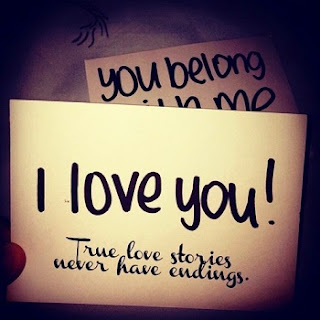 you belong
with me
I love you!
True love stories
never have endings.